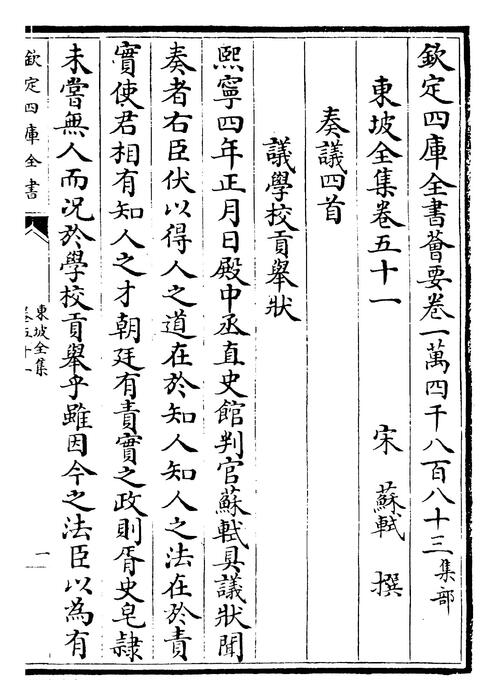 欽定四庫全書薈要卷一萬四千八百八十三 集部
東坡全集卷五十一 宋 蘇軾 撰
奏議四首
議學校貢舉狀
熙寧四年正月日殿中丞直史館判官蘇軾具議狀聞
奏者右臣伏以得人之道在於知人知人之法在於責
實使君相有知人之才朝廷有責實之政則胥史皂隸
未嘗無人而况於學校貢舉乎雖因今之法臣以為有
欽定四庫全書
東坡全集
卷五十一
一